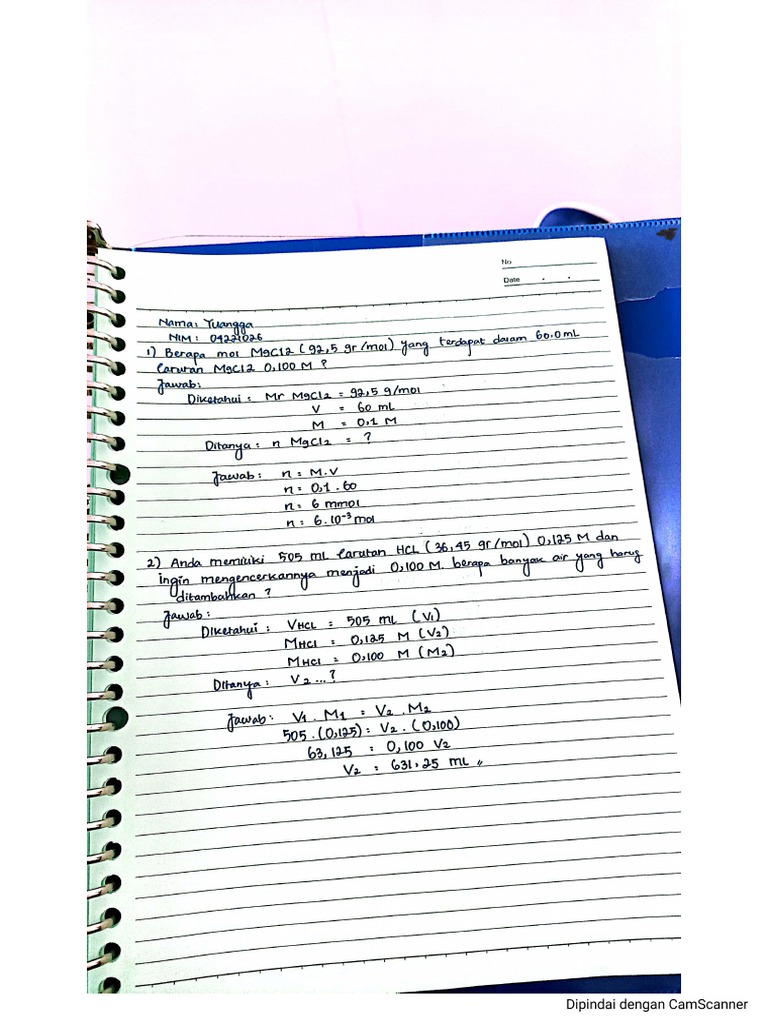 No
Date . .
Nama: Yuangga
NIM: 04221026
1) Berapa mol MgCl2 (92,5 gr/mol) yang terdapat dalam 60.0 mL
larutan MgCl2 0,100 M ?
Jawab:
Diketahui : Mr MgCl2 = 92,5 g/mol
V = 60 mL
M = 0,1 M
Ditanya: n MgCl2 = ?
Jawab: n = M.V
n = 0,1 . 60
n = 6 mmol
n = 6.10⁻³ mol
2) Anda memiliki 505 mL larutan HCL (36,45 gr/mol) 0,125 M dan
ingin mengencerkannya menjadi 0,100 M. berapa banyak air yang harus
ditambahkan ?
Jawab:
Diketahui : VHCL = 505 mL (V1)
MHCl = 0,125 M (V2)
MHCl = 0,100 M (M2)
Ditanya: V2 ...?
Jawab: V1 . M1 = V2 . M2
505 . (0,125) = V2 . (0,100)
63,125 = 0,100 V2
V2 = 631,25 mL //
Dipindai dengan CamScanner